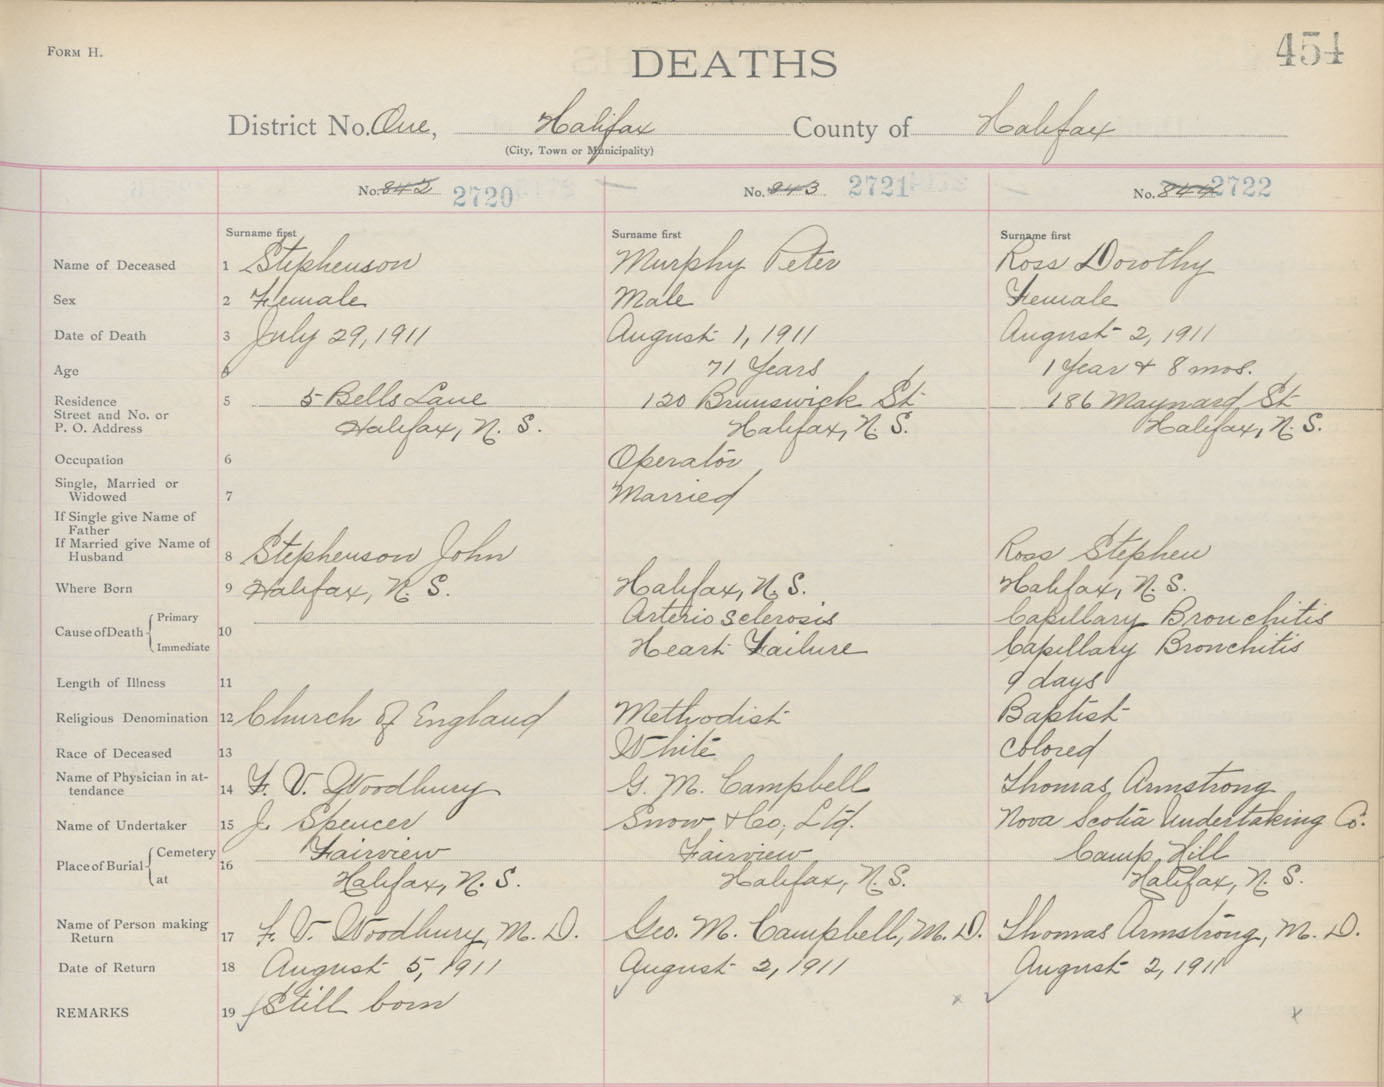 FORM H.
DEATHS
454
District No. One, Halifax County of Halifax
(City, Town or Municipality)
No. 842 2720 No. 843 2721 No. 844 2722
Surname first Surname first Surname first
Name of Deceased 1 Stephenson Murphy Peter Ross Dorothy
Sex 2 Female Male Female
Date of Death 3 July 29, 1911 August 1, 1911 August 2, 1911
Age 71 Years 1 Year + 8 mos.
Residence 5 5 Bells Lane 120 Brunswick St. 186 Maynard St
Street and No. or
P. O. Address Halifax, N. S. Halifax, N. S. Halifax, N. S.
Occupation 6 Operator
Single, Married or
Widowed 7 Married
If Single give Name of
Father
If Married give Name of
Husband 8 Stephenson John Ross Stephen
Where Born 9 Halifax, N. S. Halifax, N. S. Halifax, N. S.
Cause of Death Primary Arterio sclerosis Capillary Bronchitis
10
Immediate Heart Failure Capillary Bronchitis
Length of Illness 11 9 days
Religious Denomination 12 Church of England Methodist Baptist
Race of Deceased 13 White Colored
Name of Physician in at-
tendance 14 F. V. Woodbury G. M. Campbell Thomas Armstrong
Name of Undertaker 15 J. Spencer Snow & Co, Ltd. Nova Scotia Undertaking Co.
Place of Burial Cemetery Fairview Fairview Camp Hill
16
at Halifax, N. S. Halifax, N. S. Halifax, N. S.
Name of Person making
Return 17 F. V. Woodbury, M. D. Geo. M. Campbell, M. D. Thomas Armstrong, M. D.
Date of Return 18 August 5, 1911 August 2, 1911 August 2, 1911
REMARKS 19 Still born